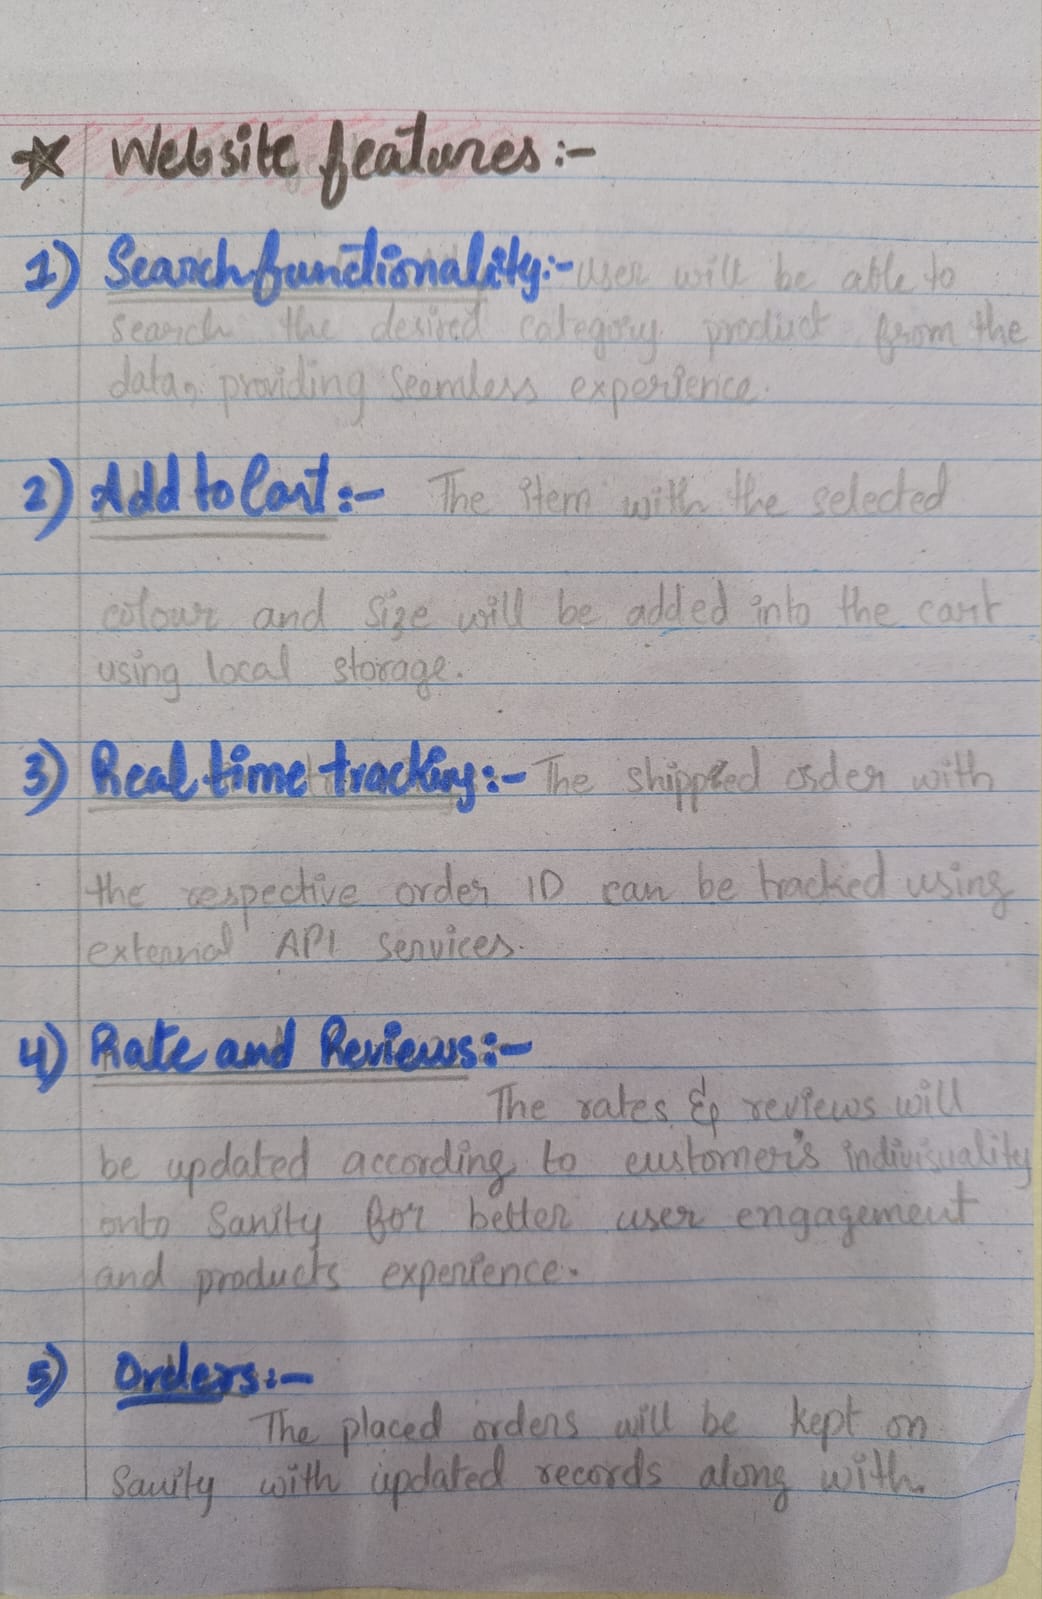 ☆ Website features:-
1) Search functionality:- user will be able to
search the desired category product from the
data, providing seamless experience.
2) Add to Cart:- The item with the selected
colour and size will be added into the cart
using local storage.
3) Real time tracking:- The shipped order with
the respective order ID can be tracked using
external API services.
4) Rate and Reviews:-
The rates & reviews will
be updated according to customer's indivisuality
onto Sanity for better user engagement
and products experience.
5) Orders:-
The placed orders will be kept on
Sanity with updated records along with.